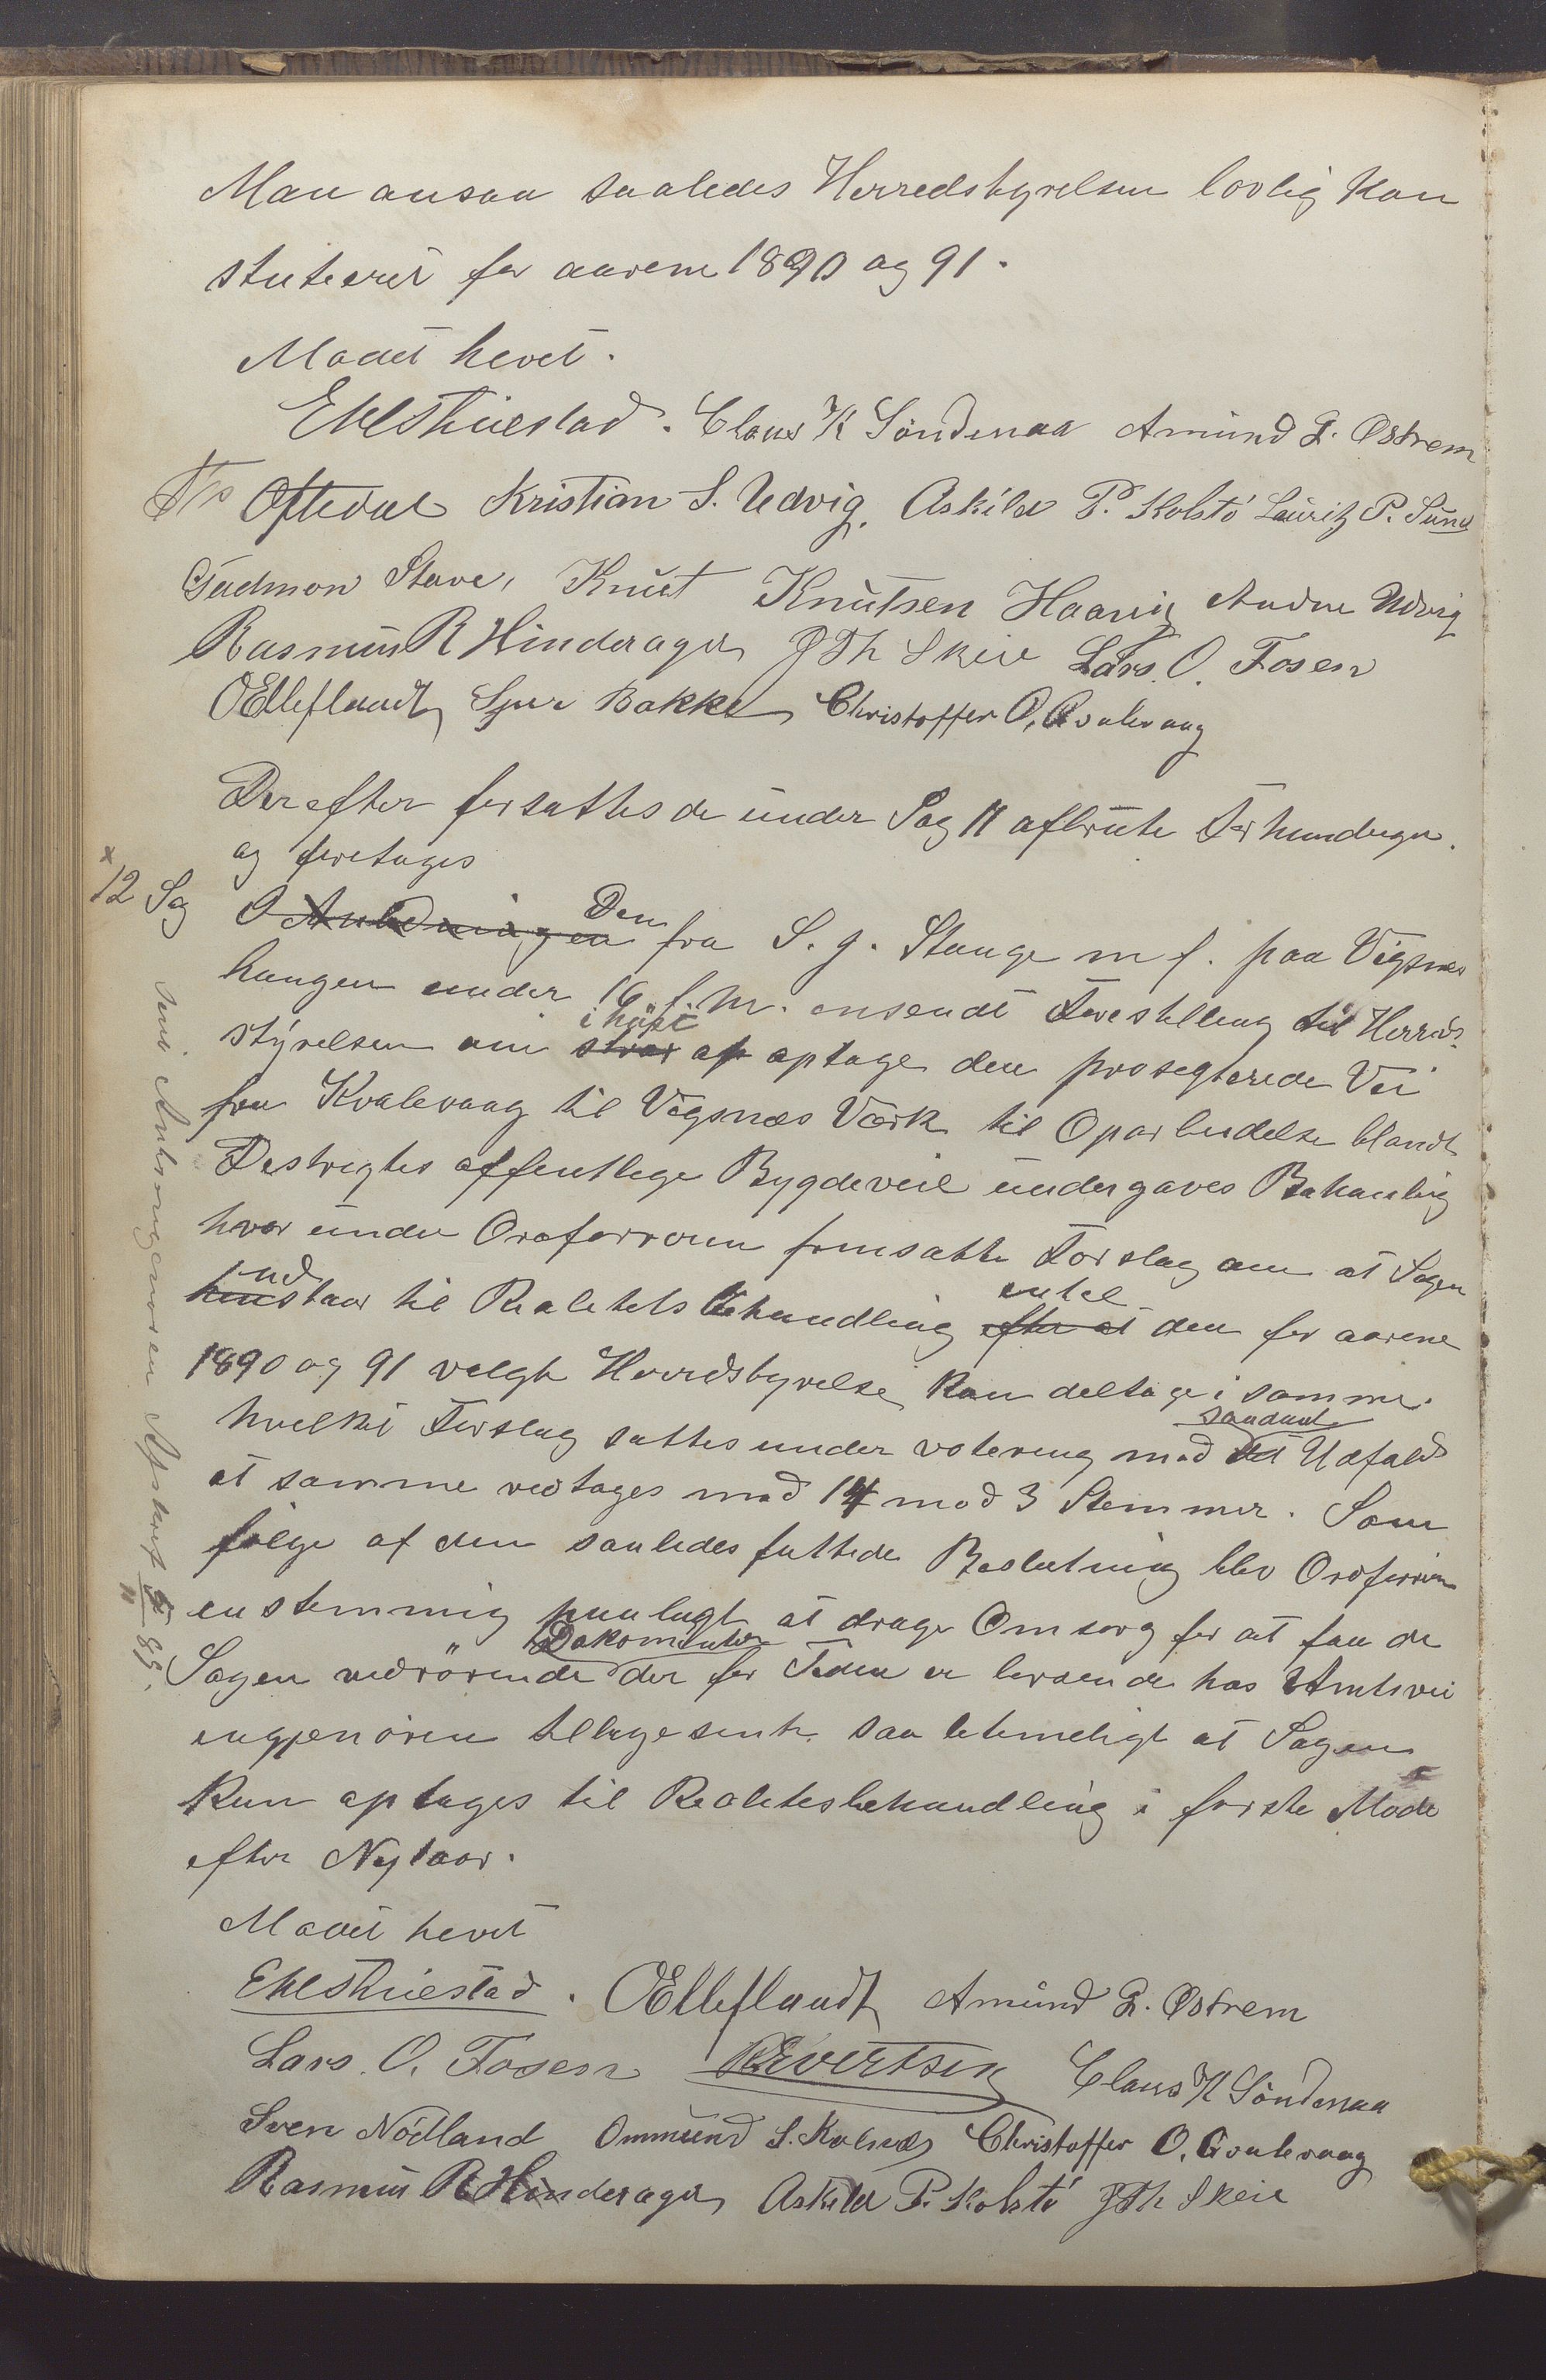 Man ansaa saaledes Herredstyrelsen lovlig kon
stuteeret for aarene 1890 og 91.
Mødet hevet.
Claus K Söndenaa Amund G. Østrem
Oftedal Kristian S. Udvig. Askild P. Kolstö Lauritz P. Sund
Gudmon Stave, Knut Knutsen Haavig Andre Udvig
Rasmus R Hinderager J Th Skeie Lars. O. Fosen
O Elleflaadt Sjur Bakke Christoffer O. Qvalevaag
Derefter forsattes de under Sag 11 afbrute Forhandrger.
og foretages
× 12 Sag I Anledningen Den fra S. J. Stange m f. paa Vigsnes
haugen under 16 f. M. ensendt Forestilling til Herreds-
styrelsen om strax i höst op optage den prosegterede Vei
fra Kvalevaag til Vigsnæs Værk til Oparbeidelse blandt
Destrigtes offentlege Bygdeveie undergaves Behanlig
hvor under Ordførreren fremsatte Forslag om at Sagen
henstaar ud til Realitets Behandling efter at entel den for aarene
1890 og 91 valgte Herredstyrelse kan deltage i samme.
hvelket Forslag sattes under votereng med det saadant Udfald
at samme vedtages med 14 mod 3 Stemmer. Som
følge af den saaledes fattede Beslutning blev Ordførreren
enstemmig paalagt at drage Omsorg for at faa de
Sagen vedrörende Dokomenter der for Teden er beroende hos Amtsvei
engjenören tilbagesent saa betemeligt at Sagen
kan optages til Realitesbehandling i første Møde
efter Nytaar.
Mødet hevet
O Elleflaadt Amund G. Østrem
Lars. O. Fosen R Evertsen Claus K Söndenaa
Sven Nödland Ommund S. Kalnes Christoffer O. Qvalevaag
Rasmus R Hinderager Askild P. Kolstö J Th Skeie
Amtsingenøren Afskrift